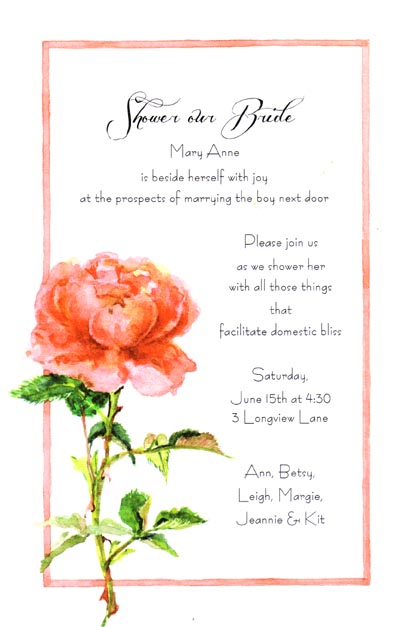 Shower our Bride
Mary Anne
is beside herself with joy
at the prospects of marrying the boy next door
Please join us
as we shower her
with all those things
that
facilitate domestic bliss
Saturday,
June 15th at 4:30
3 Longview Lane
Ann, Betsy,
Leigh, Margie,
Jeannie & Kit